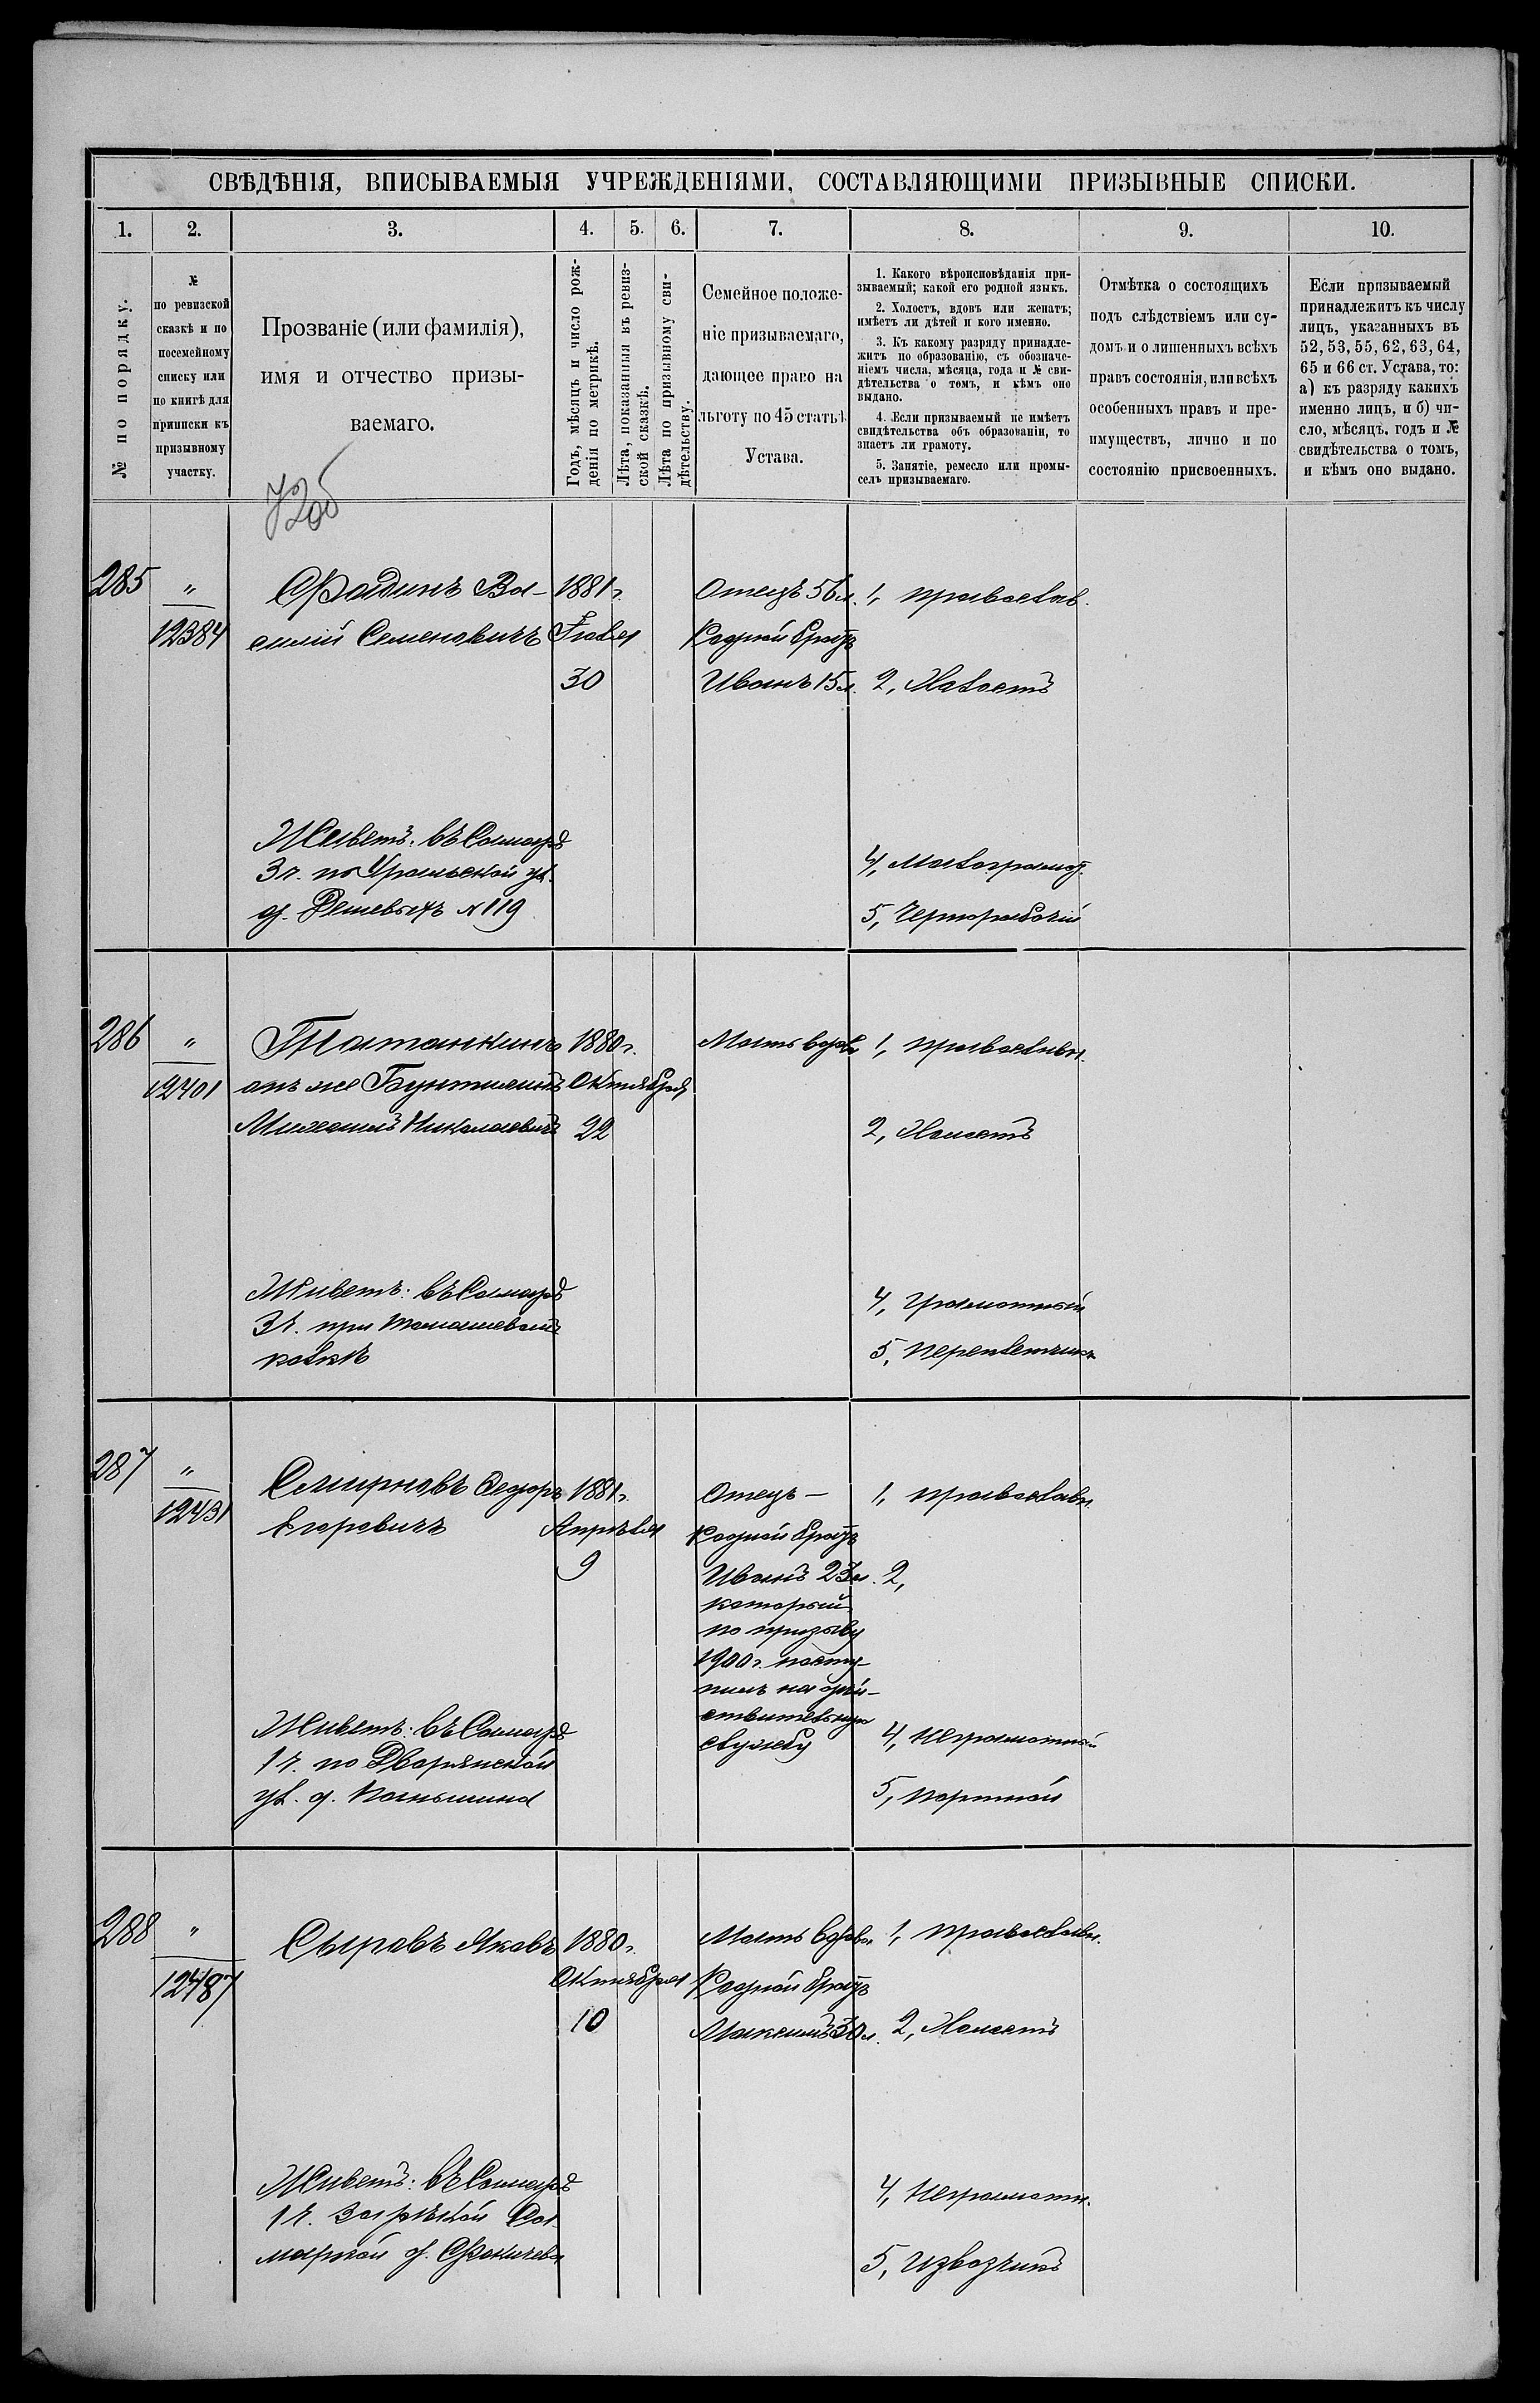 СВѢДѢНІЯ, ВПИСЫВАЕМЫЯ УЧРЕЖДЕНІЯМИ, СОСТАВЛЯЮЩИМИ ПРИЗЫВНЫЕ СПИСКИ.
1. 2. 3. 4. 5. 6. 7. 8. 9. 10.
№ по порядку.
№
по ревизской
сказкѣ и по
посемейному
списку или
по книгѣ для
приписки къ
призывному
участку.
Прозваніе (или фамилія),
имя и отчество призы-
ваемаго.
Годъ, мѣсяцъ и число рож-
денія по метрикѣ.
Лѣта, показанныя въ ревиз-
ской сказкѣ.
Лѣта по призывному сви-
дѣтельству.
Семейное положе-
ніе призываемаго,
дающее право на
льготу по 45 статьѣ
Устава.
1. Какого вѣроисповѣданія при-
зываемый; какой его родной языкъ.
2. Холостъ, вдовъ или женатъ;
имѣетъ ли дѣтей и кого именно.
3. Къ какому разряду принадле-
житъ по образованію, съ обозначе-
ніемъ числа, мѣсяца, года и № сви-
дѣтельства о томъ, и кѣмъ оно
выдано.
4. Если призываемый не имѣетъ
свидѣтельства объ образованіи, то
знаетъ ли грамоту.
5. Занятіе, ремесло или промы-
селъ призываемаго.
Отмѣтка о состоящихъ
подъ слѣдствіемъ или су-
домъ и о лишенныхъ всѣхъ
правъ состоянія, или всѣхъ
особенныхъ правъ и пре-
имуществъ, лично и по
состоянію присвоенныхъ.
Если призываемый
принадлежитъ къ числу
лицъ, указанныхъ въ
52, 53, 55, 62, 63, 64,
65 и 66 ст. Устава, то:
а) къ разряду какихъ
именно лицъ, и б) чи-
сло, мѣсяцъ, годъ и №
свидѣтельства о томъ,
и кѣмъ оно выдано.
285 " Фадинъ Ва- 1881 г. Отецъ 56 л. 1, православ.
12384 силій Семеновичъ Іюля Родной братъ
30 Иванъ 15 л. 2, Холостъ
Живетъ: въ Самарѣ
3 ч. по Уральской ул.
д. № 119
4, Малограмот.
5, Чернорабочій
286 " Татанкинъ 1880 г. Мать вдова 1, православн.
12401 онъ же Октября
Михаилъ Николаевичъ 22 2, Холостъ
Живетъ: въ Самарѣ
3 ч. при Томашевомъ
колкѣ
4, грамотный
5, переплетчикъ
287 " Смирновъ Федоръ 1881 г. Отецъ — 1, православн.
12431 Егоровичъ Апрѣля Родной братъ
9 Иванъ 23 л. 2,
который
по призыву
1900 г. посту-
пилъ на дѣй-
ствительную
службу
Живетъ: въ Самарѣ
1 ч. по Дворянской
ул. д. Паньшина
4, неграмотный
5, портной
288 " Сыровъ Яковъ 1880 г. Мать вдова 1, православн.
12487 Октября Родной братъ
10 Максимъ 30 л. 2, Холостъ
Живетъ: въ Самарѣ
1 ч. за рѣкой Са-
маркой д.
4, неграмотн.
5, извозчикъ